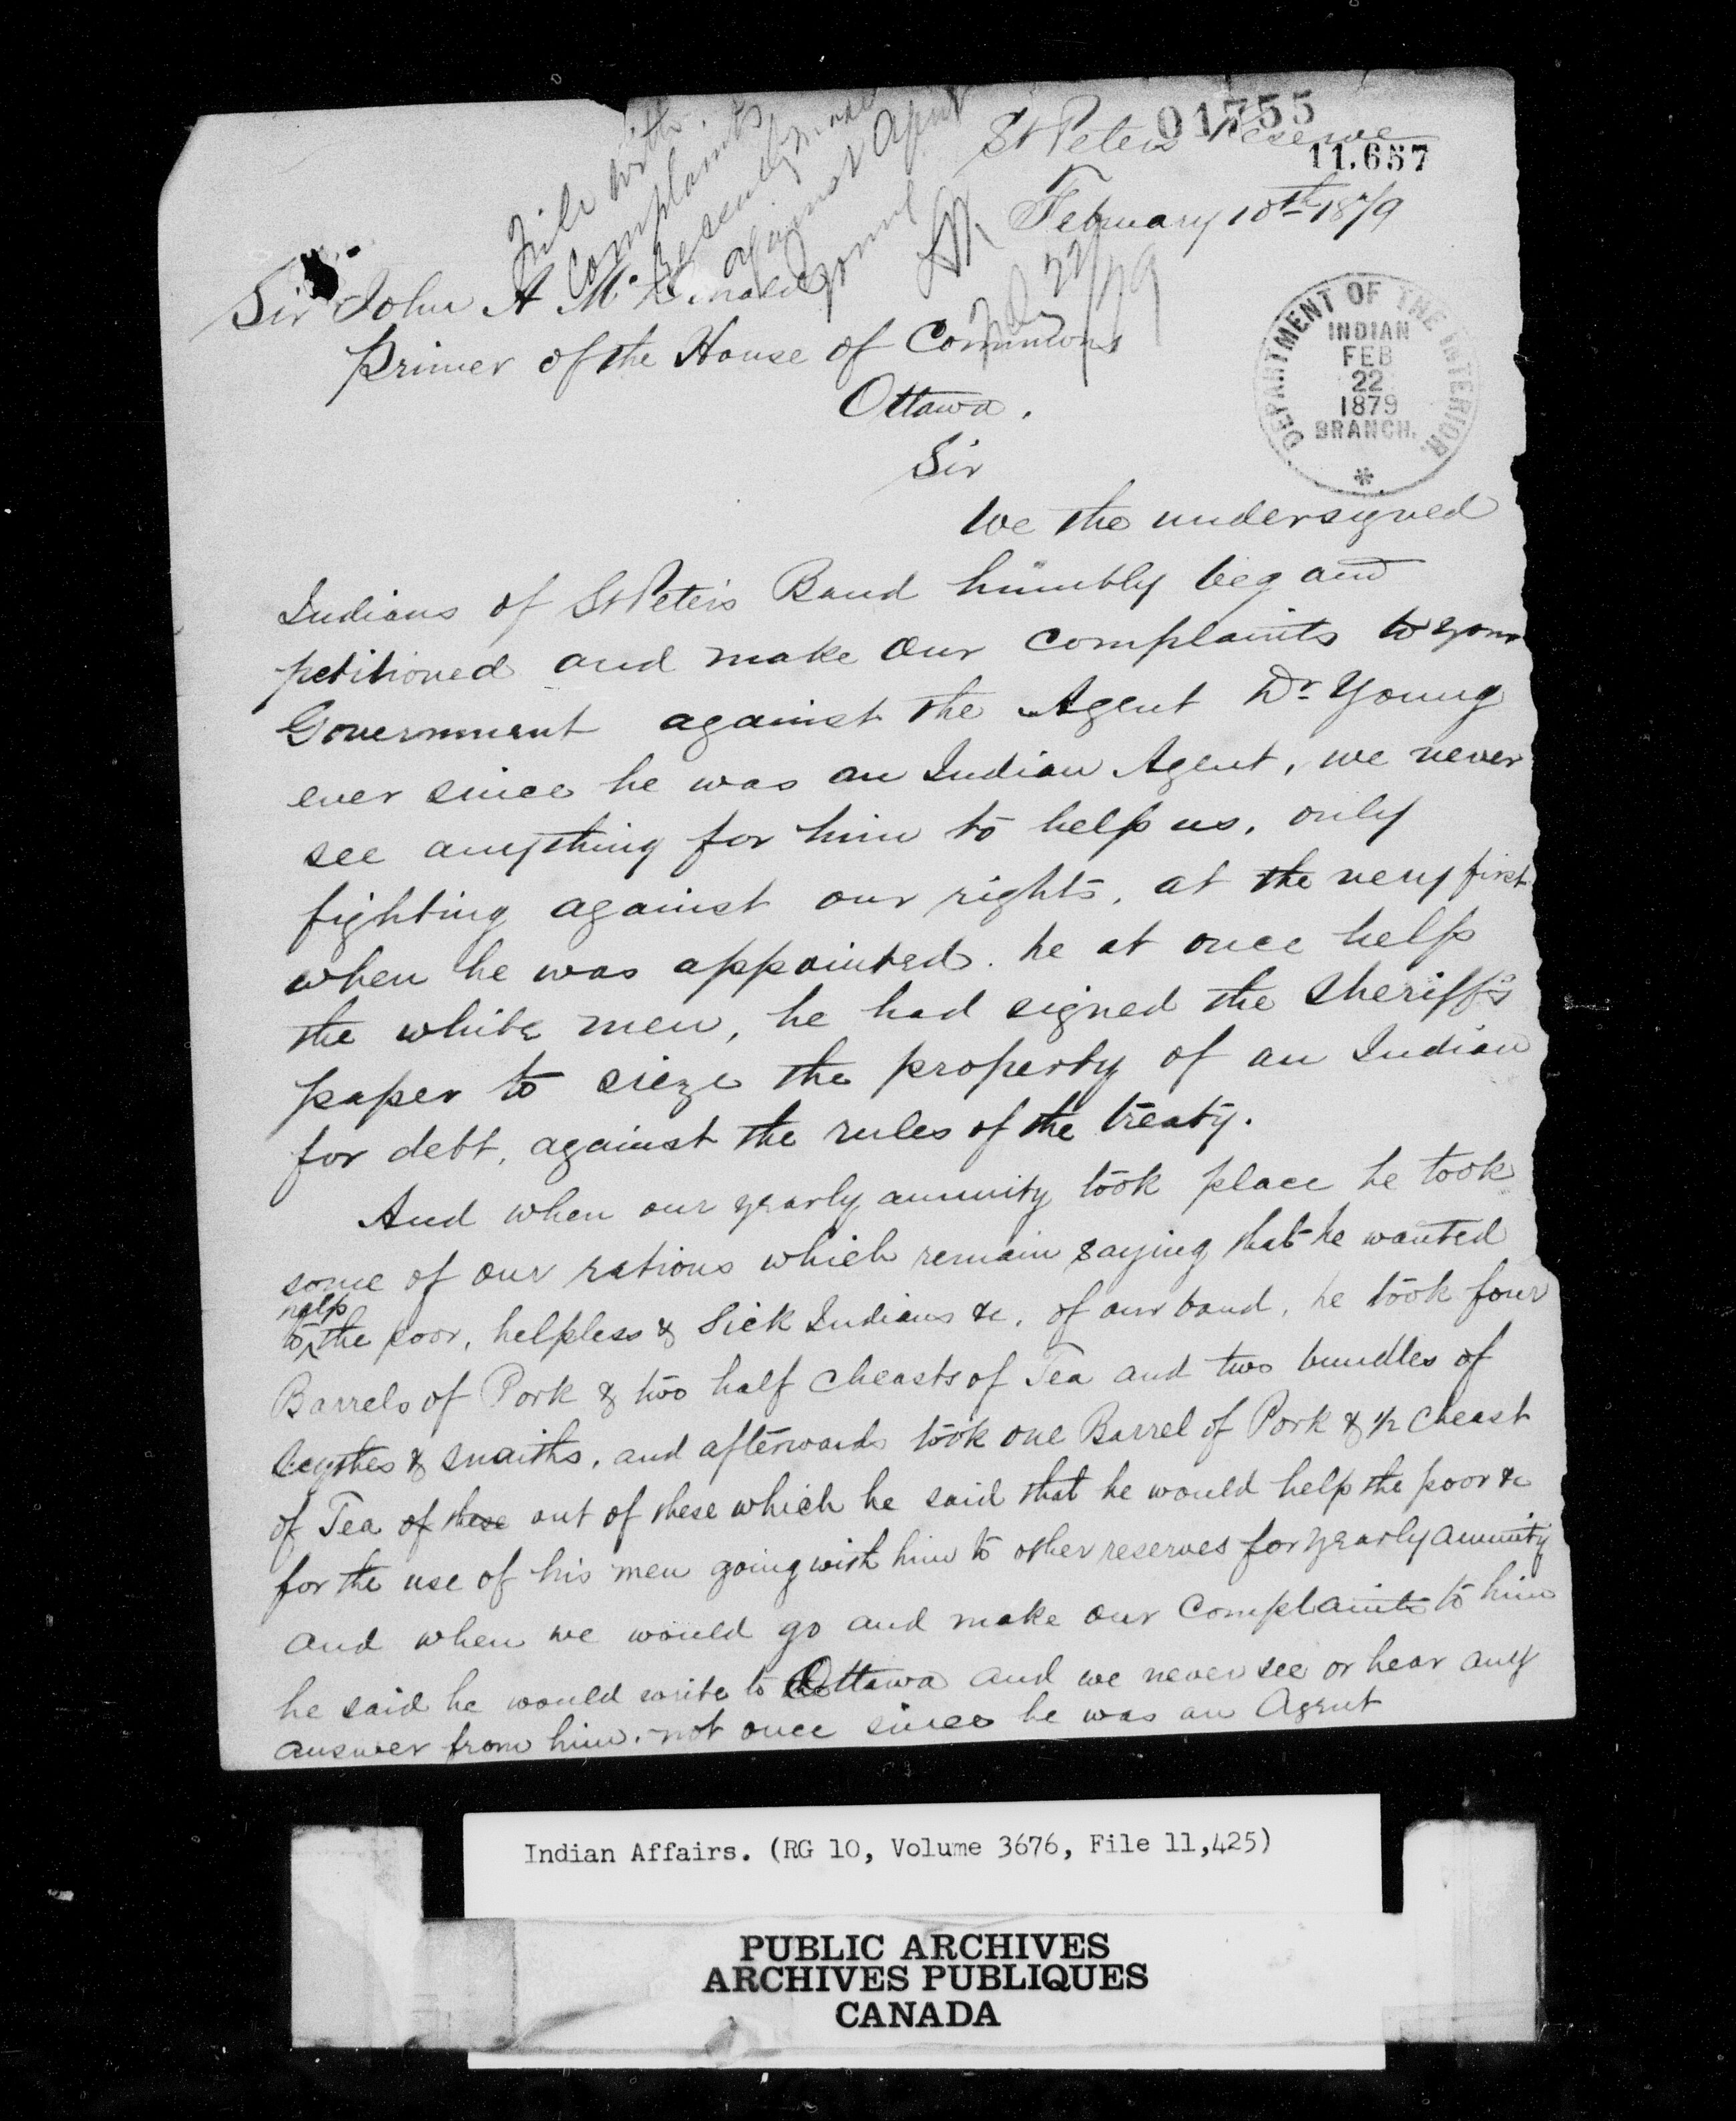 01755
St Peters Reserve
11.657
February 10th 1879
File with
complaints
recently made
against Agent
Young
Feb 22/79
Sir John A McDonald
primer of the House of Commons
Ottawa.
DEPARTMENT OF THE INTERIOR
INDIAN
FEB
22
1879
BRANCH.
*
Sir
We the undersigned
Indians of St Peter's Band humbly beg and
petitioned and make our complaints to your
Government against the Agent Dr Young
ever since he was an Indian Agent, we never
see anything for him to help us, only
fighting against our rights, at the very first
when he was appointed. he at once help
the white men, he had signed the Sheriff's
paper to sieze the property of an Indian
for debt, against the rules of the treaty.
And when our yearly annuity took place he took
some of our rations which remain saying that he wanted
to help the poor, helpless & Sick Indians &c, of our band, he took four
Barrels of Pork & two half cheasts of Tea and two bundles of
Scythes & snaiths, and afterwards took one Barrel of Pork & 1/2 cheast
of Tea of these out of these which he said that he would help the poor &c
for the use of his men going with him to other reserves for yearly annuity
and when we would go and make our complaints to him
he said he would write to Ottawa and we never see or hear any
answer from him. not once since he was an Agent
Indian Affairs. (RG 10, Volume 3676, File 11,425)
PUBLIC ARCHIVES
ARCHIVES PUBLIQUES
CANADA